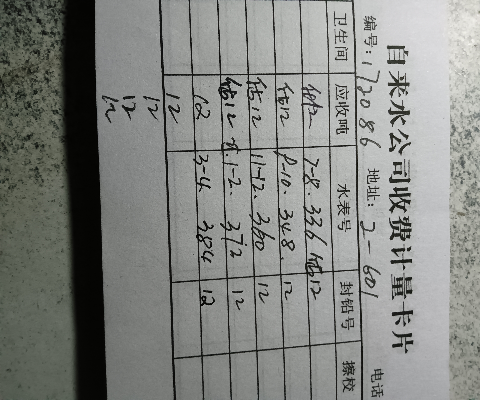 自来水公司收费计量卡片
编号:172086 地址:2-601 电话
卫生间 应收吨 水表号 封铅号 擦校
估12 7-8. 336 估12
估12 9-10. 348. 12
估12 11-12. 360 12
估12 1-2. 372 12
12 3-4. 384 12
12
12
12
12